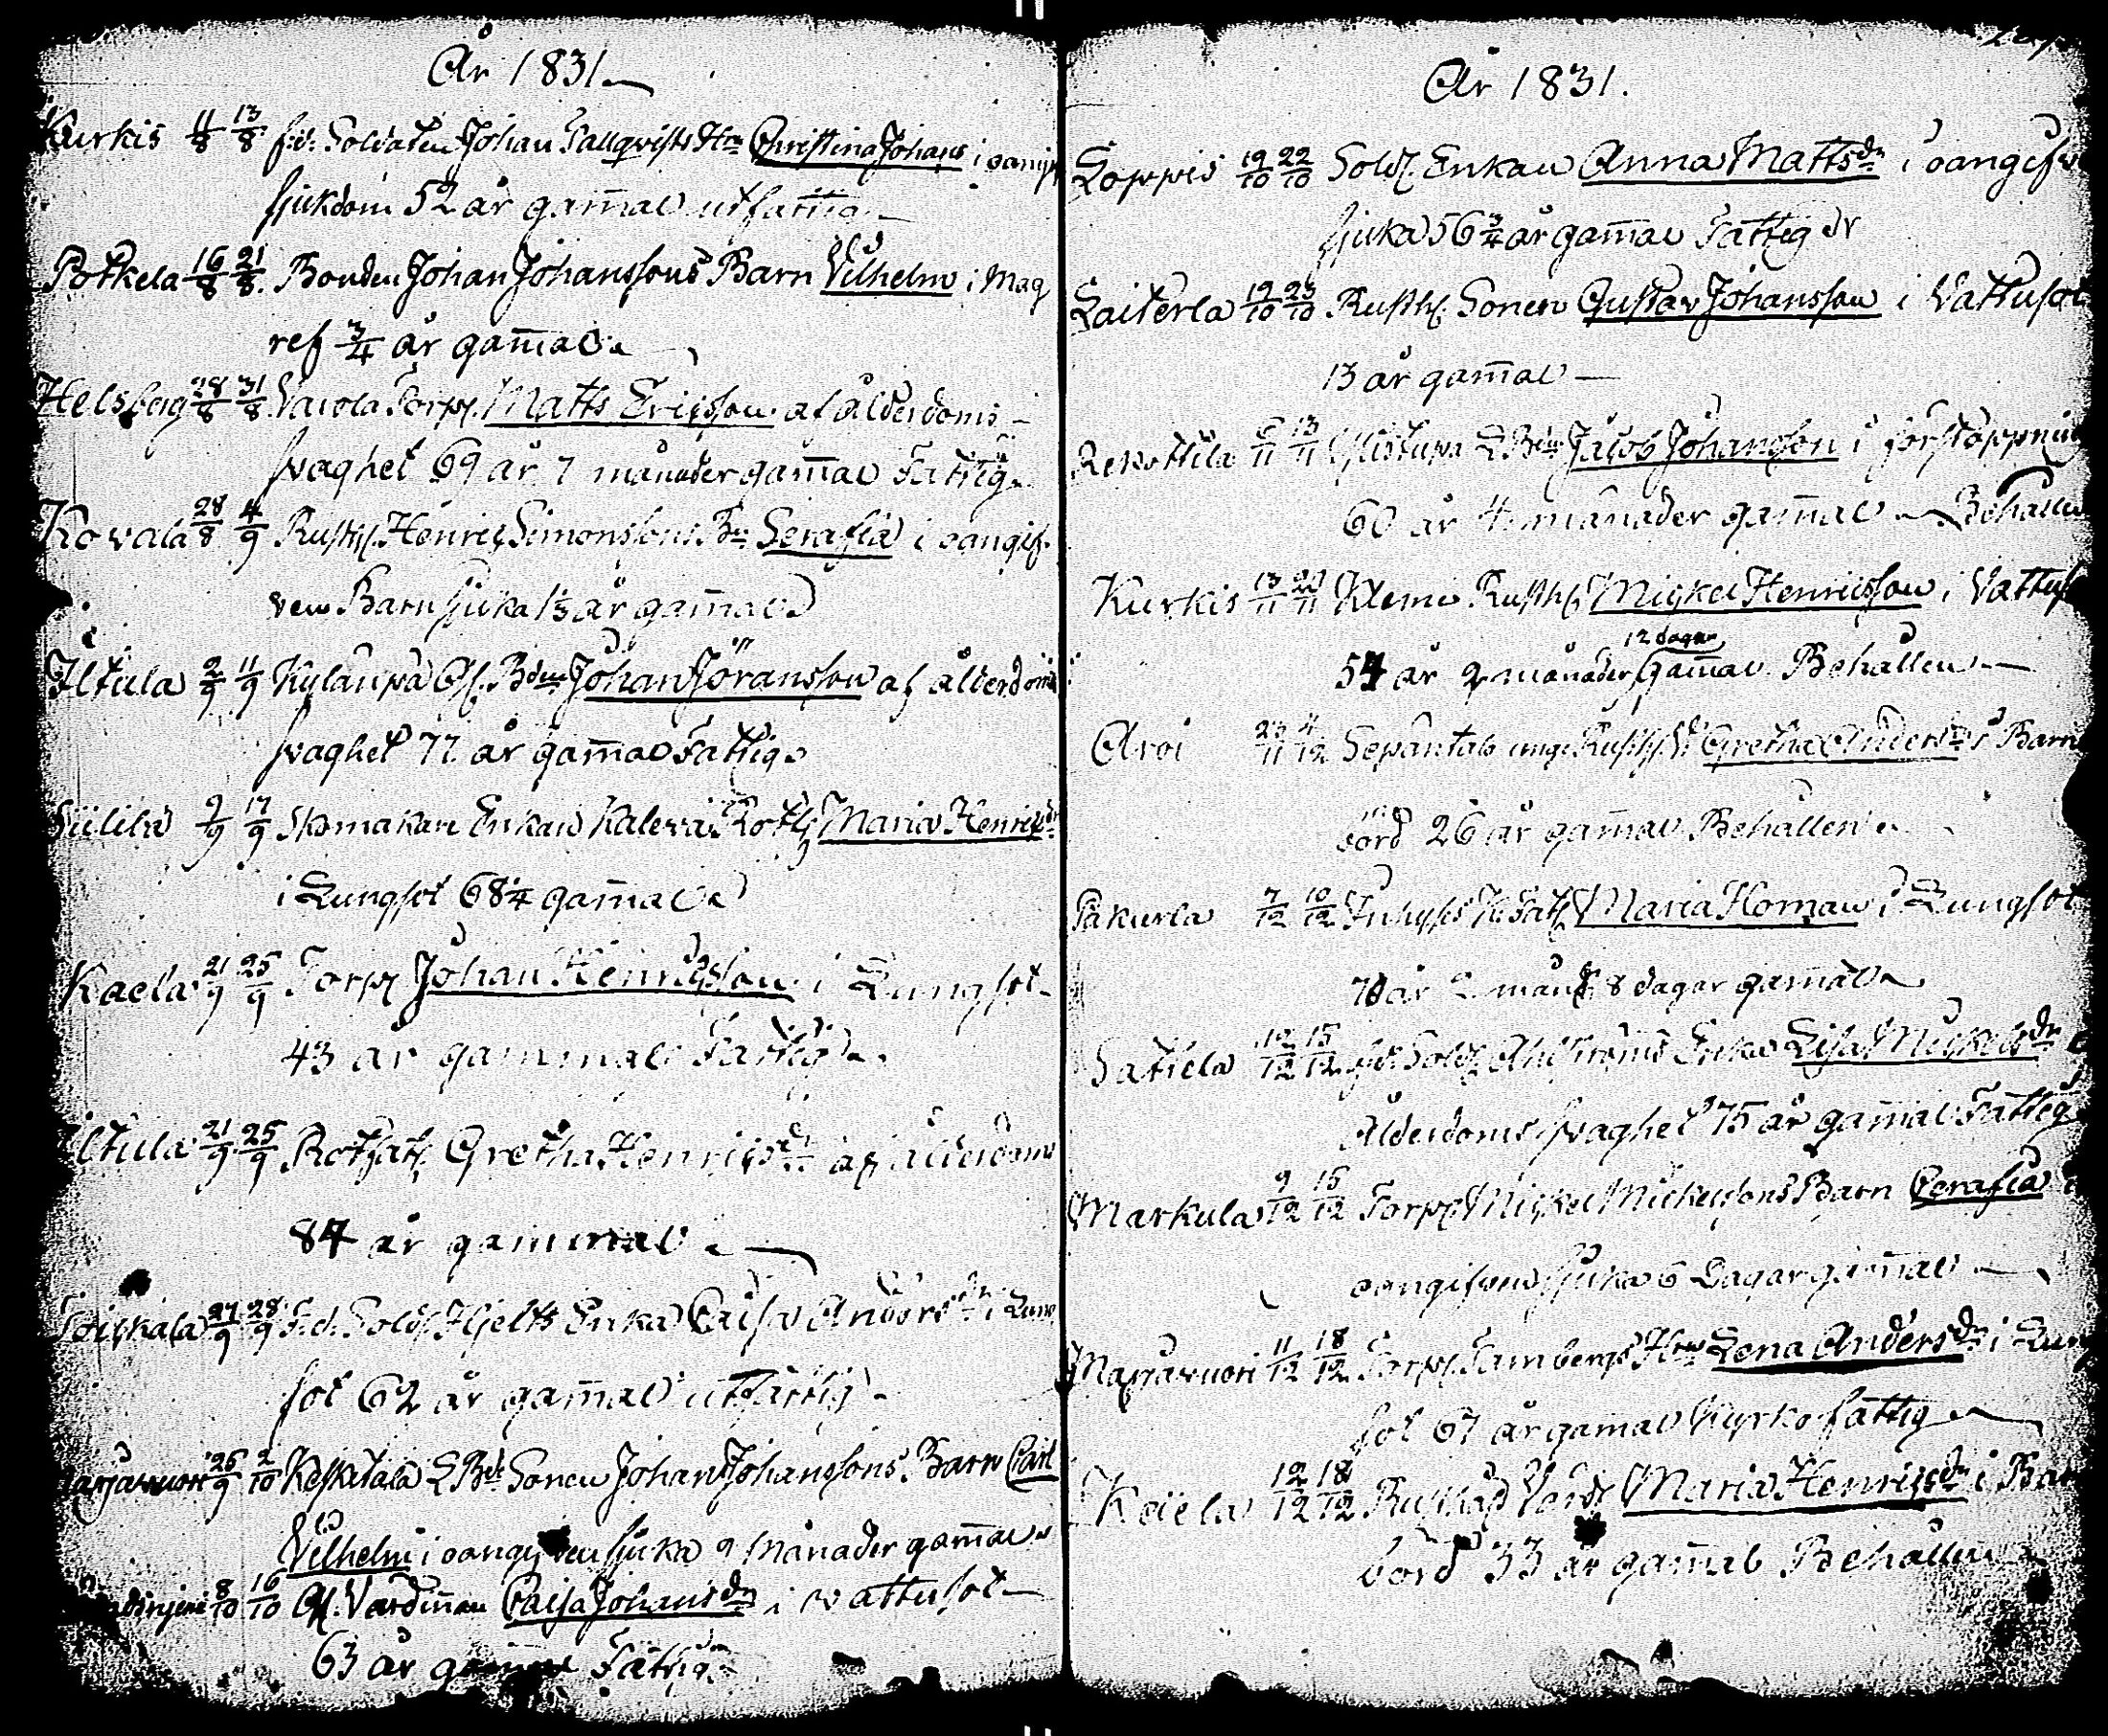 År 1831.
Kurkis 11/8 13/8 f.d. Soldaten Johan Tallqvists Hu Christina Johans i oangif
sjukdom 52 år gam̄al utfattig.
Potkela 16/8 21/8 Bonden Johan Johanssons Barn Vilhelm i Mag
ref 3/4 år gam̄al.
Helsberg 28/8 31/8 Torp. Matts Ericsson af ålderdoms
svaghet 69 år 7 månader gam̄al Fattig.
Kovala 28/8 4/9 Rusth. Henric Simonssons Bn Serafia i oangif
ven Barnsjuka 1/3 år gam̄al
Iltula 2/9 11/9 Kylänpä Af. Bden Johan Jöransson af ålderdoms
svaghet 77 år gam̄al Fattig.
9/9 17/9 Skomakare Enkan Kaleva Rothj Maria Henricsdr
i Lungsot 68 1/4 gam̄al
Kaela 21/9 25/9 Torp Johan Henricsson i Lungsot
43 år gammal Fattig.
Iltula 21/9 25/9 Rothjah. Gretha Henricsdr af ålderdoms
84 år gammal.
27/9 28/9 F.d. Sold. Hjelts Enka Caisa Andersdr i Lung
sot 62 år gam̄al utfattig.
Marjavuori 25/9 2/10 Keskitalo L.Bde Sonen Johan Johanssons Barn Carl
Vilhelm i oangifven sjuka 9 Månader gam̄al
8/10 16/10 Af. Värdin̄an Caisa Johansdr i vattusot
63 år gammal Fattig.
År 1831.
Loppis 19/10 22/10 Sold. Enkan Anna Mattsdr i oangifv
sjuka 56 3/4 år gam̄al Fattig
Laiterla 19/10 23/10 Rusth. Sonen Gustav Johansson i Vattusot
13 år gam̄al
Rekottila 6/11 13/11 L.Bden Jacob Johansson i förstoppning
60 år 4 månader gam̄al Behållen
Kurkis 13/11 20/11 Klemi Rusth. Mickel Henricsson i Vattus
54 år 2 månader 12 dagar gam̄al Behållen
Arvi 23/11 4/12 Sepäntalo unge Rusth. Gretha Andersdr i Barn
börd 26 år gam̄al Behållen.
Pakurla 7/12 10/12 Inhyses Maria Homan i Lungsot
70 år 2 mån 8 dagar gam̄al
Satiela 10/12 15/12 f.d. Sold. Ahlströms Enka Lisa Mickelsdr
Ålderdoms svaghet 75 år gam̄al Fattig
Markula 9/12 15/12 Torp Mickel Mickelsons Barn Cerafia
oangifven sjuka 6 Dagar gam̄al
Marjavuori 11/12 18/12 Torp. Tambergs Hru Lena Andersdr i Lung
sot 67 år gam̄al Kyrkofattig
Keiela 12/12 18/12 Maria Henricsdr i Barn
börd 33 år gam̄al Behållen